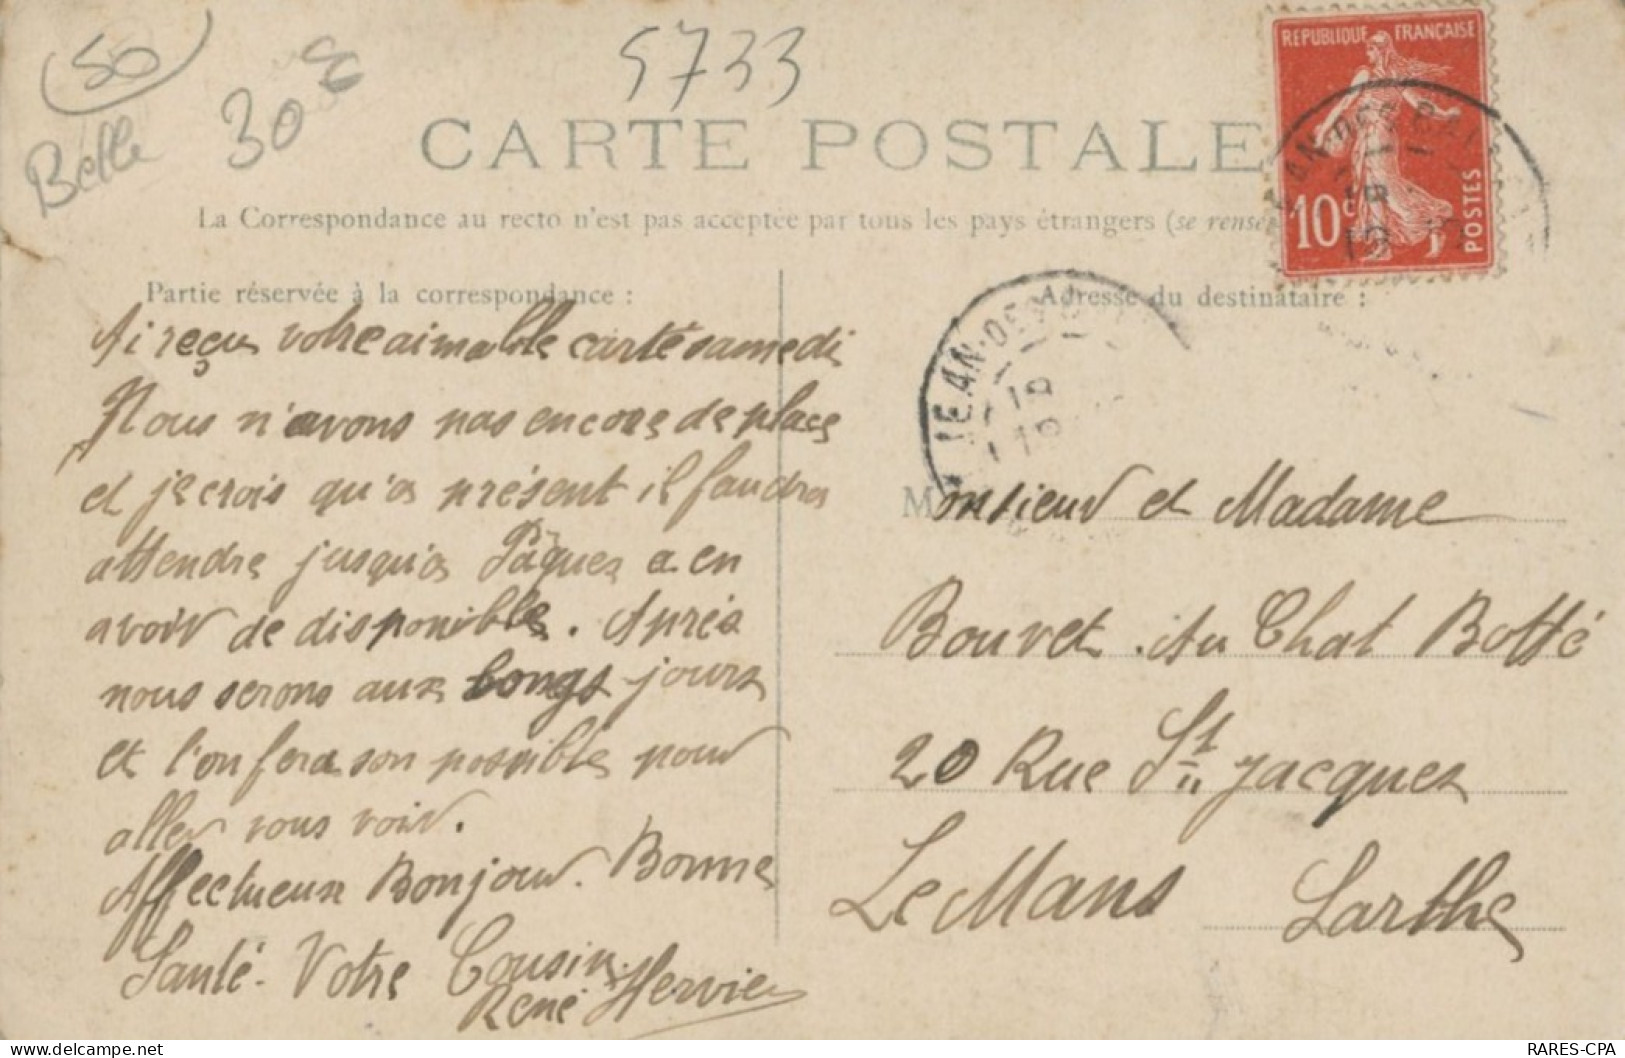 50
Belle
30 €
5733
CARTE POSTALE
La Correspondance au recto n'est pas acceptée par tous les pays étrangers (se rense
REPUBLIQUE FRANÇAISE
10c
POSTES
Partie réservée à la correspondance :
Ai reçu votre aimable carte samedi
Nous n'avons pas encore de place
et je crois qu'a présent il faudra
attendre jusqu'a Pâques a en
avoir de disponible. Après
nous serons aux longs jours
et l'on fera son possible pour
aller vous voir.
Affectueux Bonjour. Bonne
Santé. Votre Cousin.
René Hervieu
Adresse du destinataire :
JEAN-DES
Monsieur et Madame
Bouvet. Au Chat Botté
20 Rue St Jacques
Le Mans Sarthe
RARES-CPA